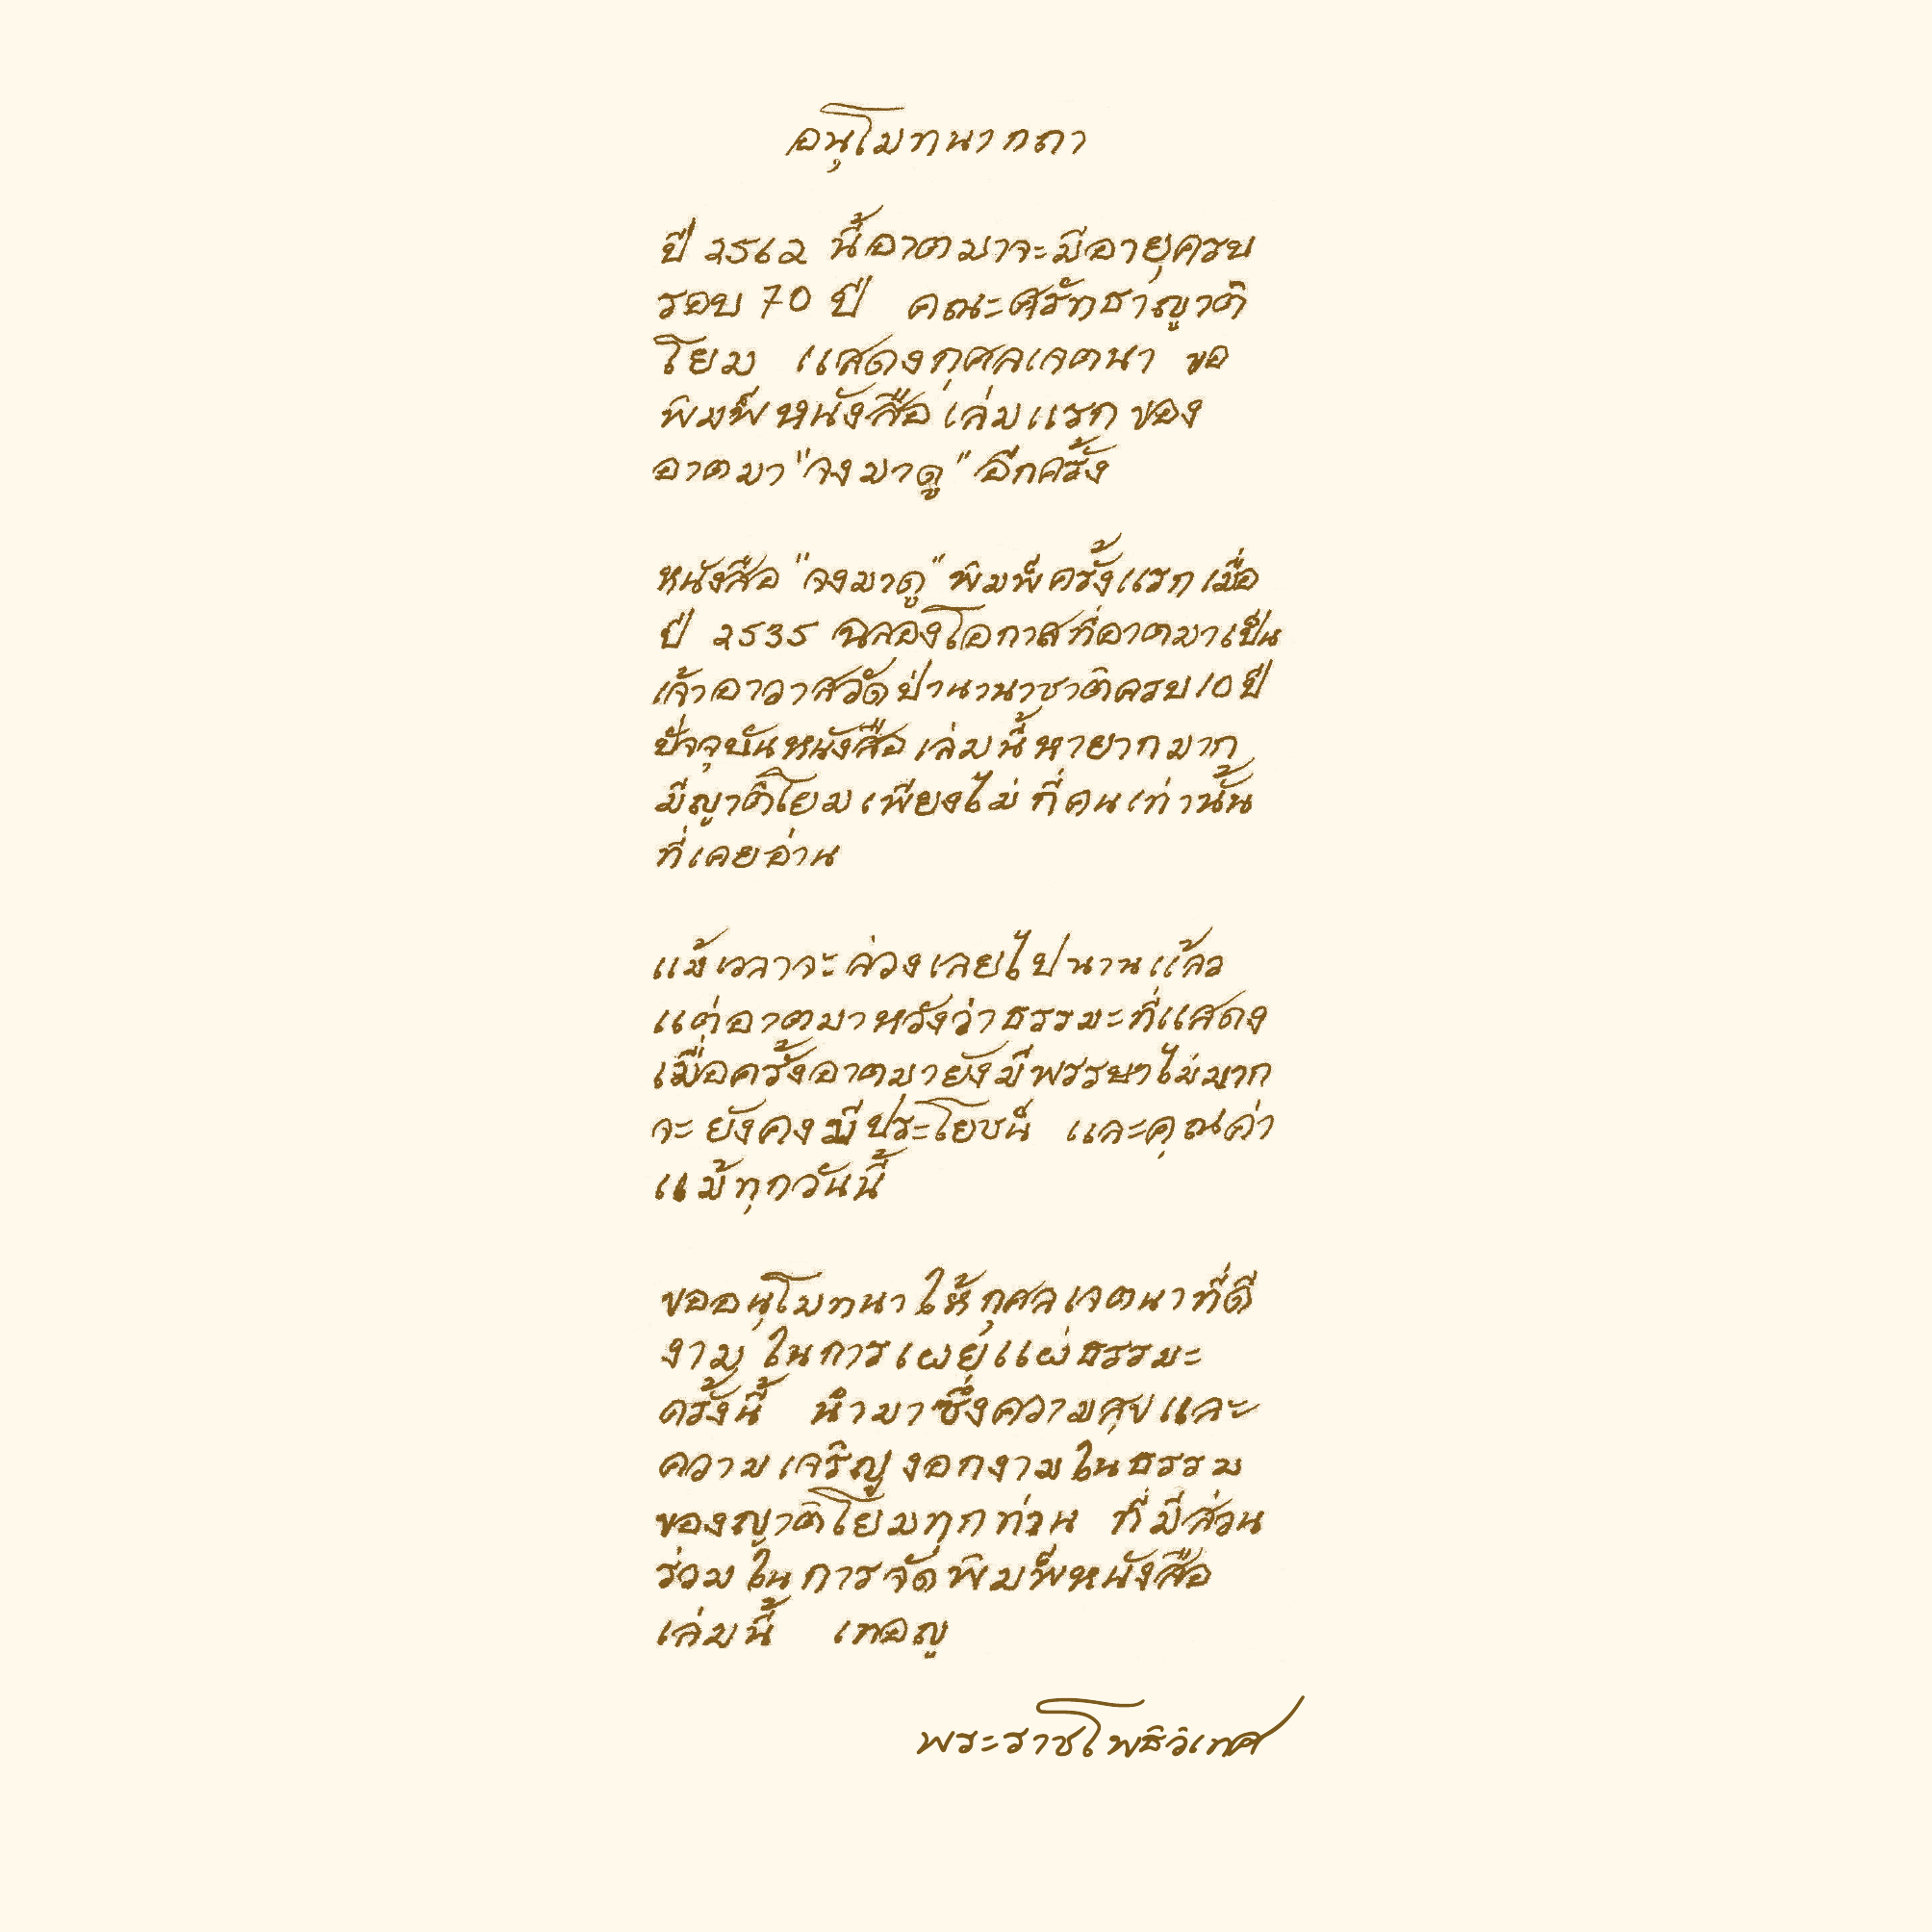 อนุโมทนากถา
ปี 2562 นี้อาตมาจะมีอายุครบ
รอบ 70 ปี คณะศรัทธาญาติ
โยม แสดงกุศลเจตนา ขอ
พิมพ์หนังสือเล่มแรกของ
อาตมา "จงมาดู" อีกครั้ง
หนังสือ "จงมาดู" พิมพ์ครั้งแรกเมื่อ
ปี 2535 ฉลองโอกาสที่อาตมาเป็น
เจ้าอาวาสวัดป่านานาชาติครบ 10 ปี
ปัจจุบันหนังสือเล่มนี้หายากมาก
มีญาติโยมเพียงไม่กี่คนเท่านั้น
ที่เคยอ่าน
แม้เวลาจะล่วงเลยไปนานแล้ว
แต่อาตมาหวังว่าธรรมะที่แสดง
เมื่อครั้งอาตมายังมีพรรษาไม่มาก
จะยังคงมีประโยชน์ และคุณค่า
แม้ทุกวันนี้
ขออนุโมทนาให้กุศลเจตนาที่ดี
งาม ในการเผยแผ่ธรรมะ
ครั้งนี้ นำมาซึ่งความสุขและ
ความเจริญงอกงามในธรรม
ของญาติโยมทุกท่าน ที่มีส่วน
ร่วมในการจัดพิมพ์หนังสือ
เล่มนี้ เทอญ
พระราชโพธิวิเทศ